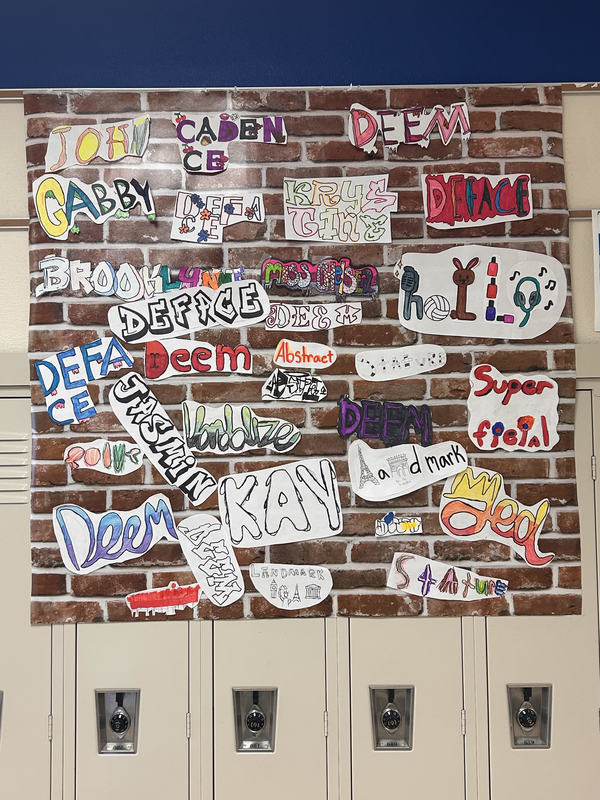 JOHN
CADEN
CE
DEEM
GABBY
DEFA
CE
KRYS
TINE
DEFACE
BROOKLYNT
DEFACE
DEEM
DEFA
CE
Deem
Abstract
Super
ficial
JASMIN
Vandalize
DEEM
Landmark
KAY
Deem
Jed
LANDMARK
STATURE